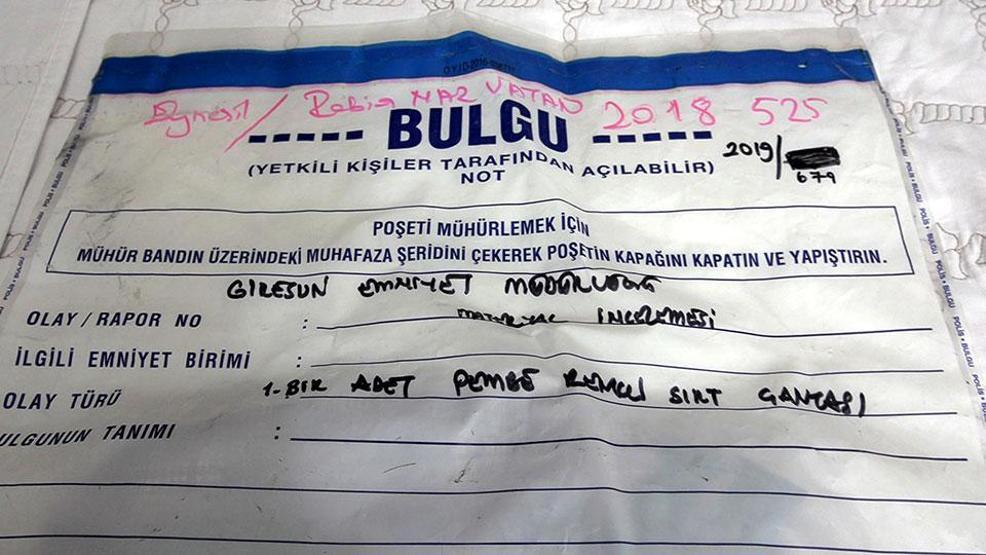 Eynesil / Rabia NAZ VATAN 2018-525
----- BULGU -----
(YETKİLİ KİŞİLER TARAFINDAN AÇILABİLİR)
2019/
679
NOT
POŞETİ MÜHÜRLEMEK İÇİN
MÜHÜR BANDIN ÜZERİNDEKİ MUHAFAZA ŞERİDİNİ ÇEKEREK POŞETİN KAPAĞINI KAPATIN VE YAPIŞTIRIN.
GİRESUN EMNİYET MÜDÜRLÜĞÜ
OLAY / RAPOR NO : MATERYAL İNCELEMESİ
İLGİLİ EMNİYET BİRİMİ :
OLAY TÜRÜ 1-BİR ADET PEMBE RENKLİ SIRT ÇANTASI
ULGUNUN TANIMI :
POLİS • BULGU